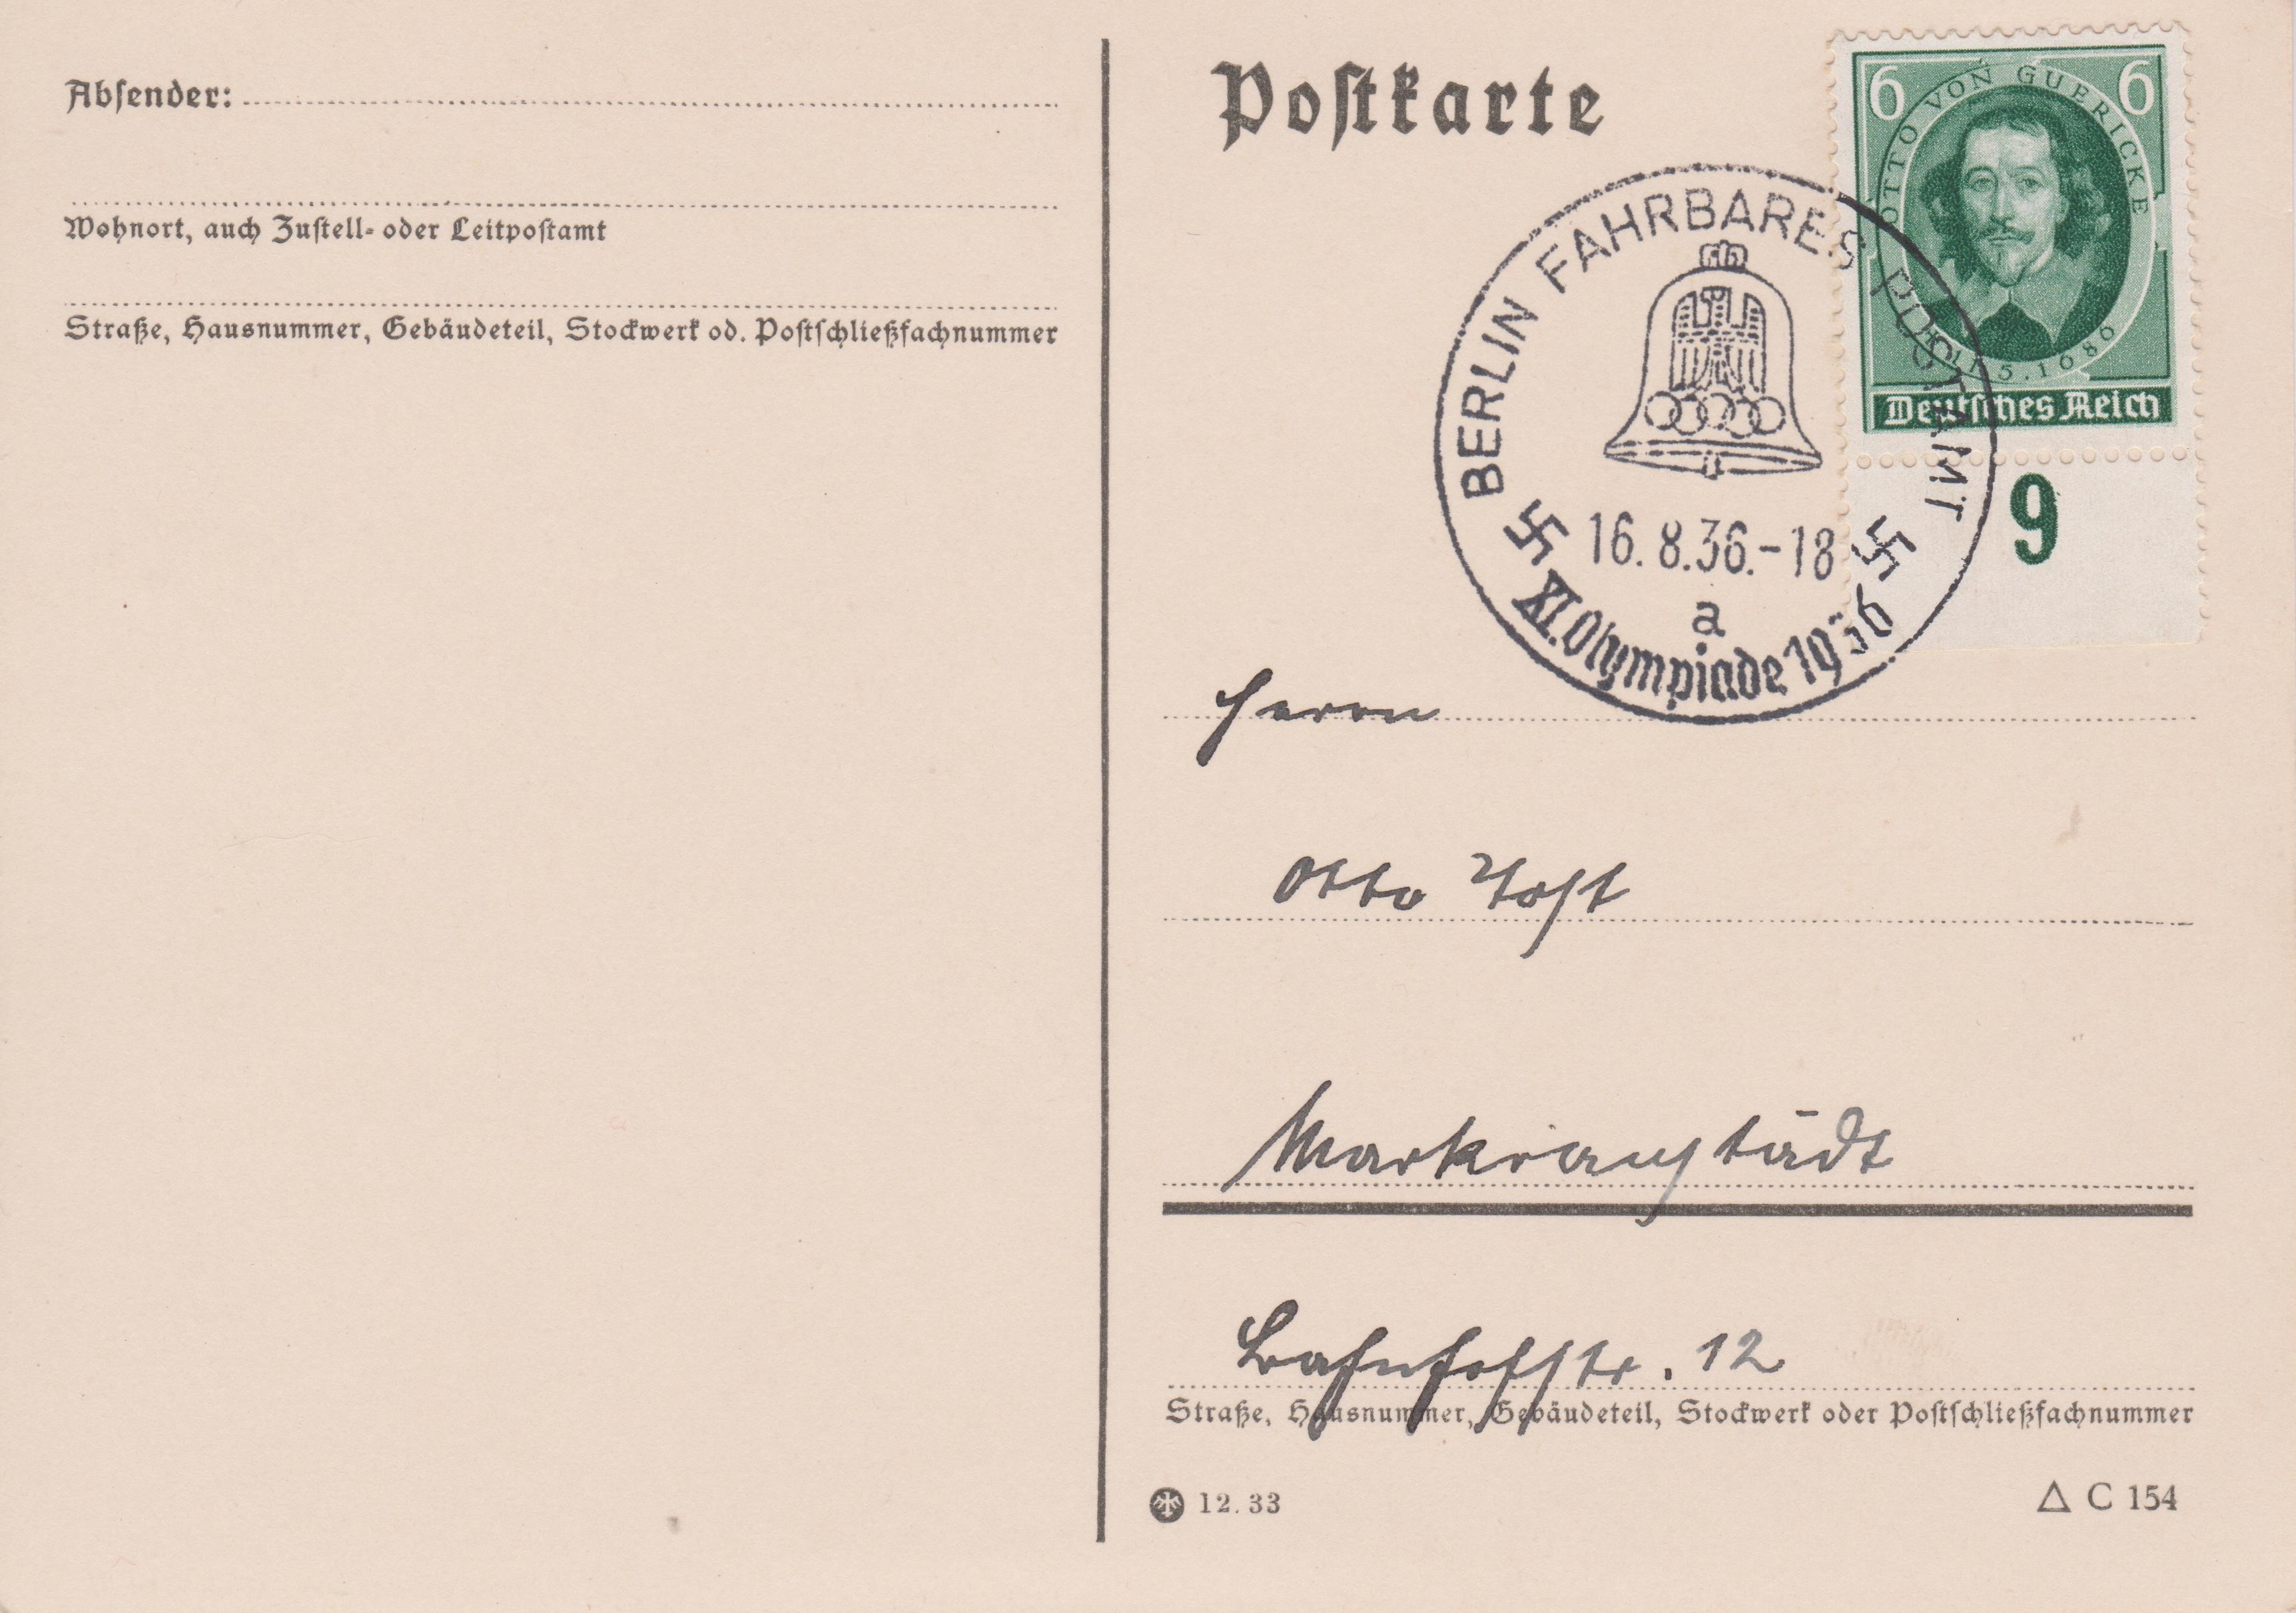 Absender:
Wohnort, auch Zustell- oder Leitpostamt
Straße, Hausnummer, Gebäudeteil, Stockwerk od. Postschließfachnummer
Postkarte
6 6
OTTO VON GUERICKE
11.5.1686
Deutsches Reich
9
BERLIN FAHRBARES POSTAMT
16.8.36.-18
a
XI. Olympiade 1936
Herrn
Otto
Markranstädt
Bahnhofstr. 12
Straße, Hausnummer, Gebäudeteil, Stockwerk oder Postschließfachnummer
12.33
Δ C 154